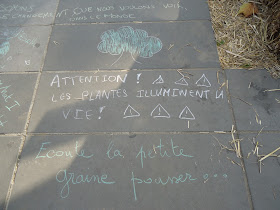 CHANGEMENT QUE NOUS VOULONS VOIR
DANS LE MONDE
ATTENTION !
LES PLANTES ILLUMINENT LA
VIE !
Ecoute la petite
graine pousser...